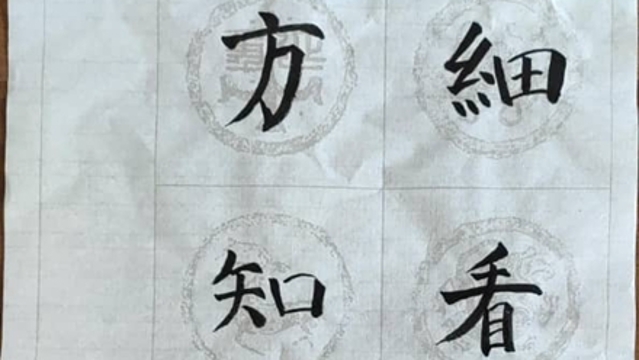 細看
方知